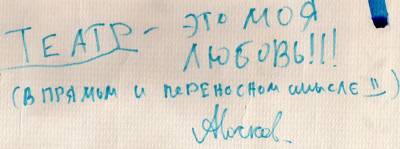 ТЕАТР - ЭТО МОЯ
ЛЮБОВЬ!!!
(В ПРЯМОМ И ПЕРЕНОСНОМ СМЫСЛЕ!!)